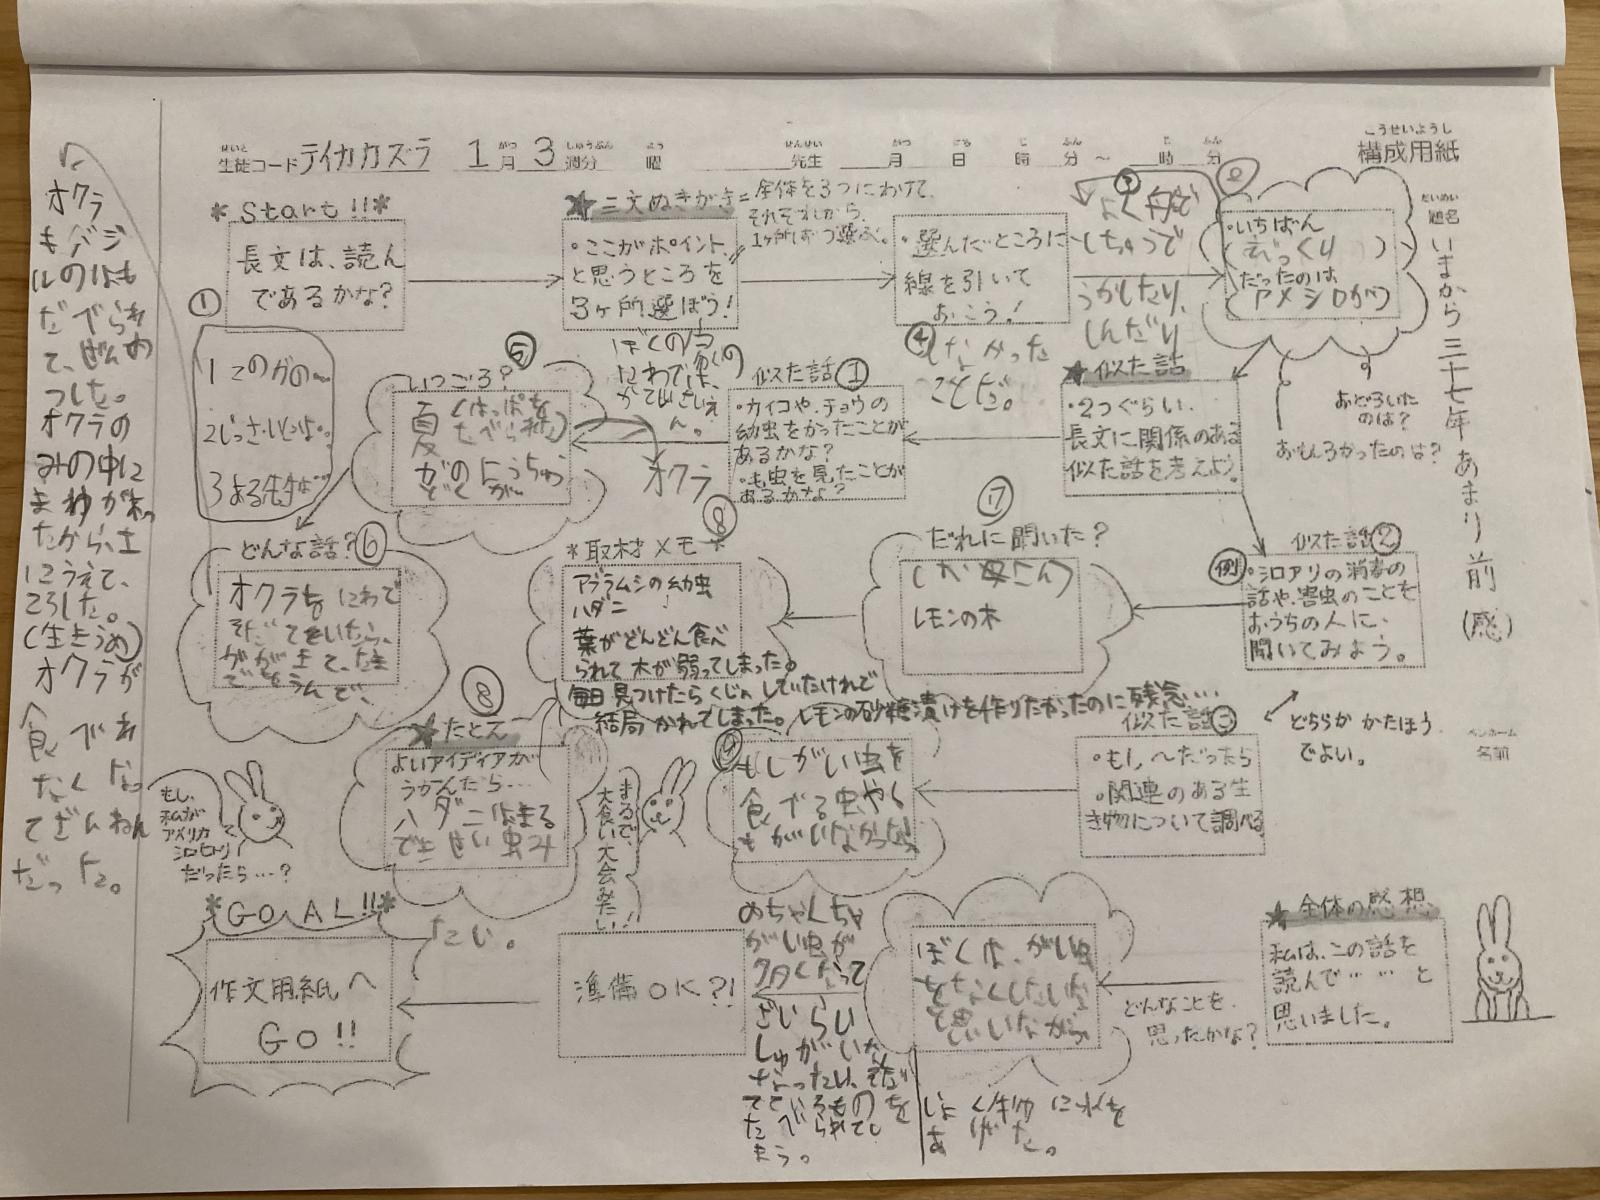 せいと
生徒コード テイカカズラ 1月 3週分 曜 先生 月 日 時 分 ~ 時 分
こうせいようし
構成用紙
だいめい
題名
いまから三十七年あまり前(感)
ペンネーム
名前
*Start!!*
長文は、読ん
であるかな?
★三文ぬきがき=全体を3つにわけて、
それぞれから、
1ヶ所ずつ選ぶ。
・ここがポイント、
と思うところを
3ヶ所選ぼう!
・選んだところに
線を引いて
おこう!
②
・いちばん
だったのは
おどろいた
のは?
おもしろかったのは?
③
しちゃうで
うかしたり、
しんだり
しなかった
ことだ。
★似た話
・2つぐらい、
長文に関係のある
似た話を考えよう。
④
似た話①
・カイコや、チョウの
幼虫をかったことが
あるかな?
・も虫を見たことが
あるかな?
ぼくの
⑤
いつごろ?
夏
オクラ
①
1このガの〜
3ある先生が
どんな話?⑥
オクラをにわで
そだてていたら、
ガがきて、
似た話②
例
・シロアリの消毒の
話や、害虫のことを
おうちの人に、
聞いてみよう。
⑦
だれに聞いた?
(お母さん)
レモンの木
⑧
*取材メモ*
アブラムシの幼虫
ハダニ
葉がどんどん食べ
られて 木が弱ってしまった。
毎日見つけたらくじょしていたけれど
結局 かれてしまった。レモンの砂糖漬けを作りたかったのに残念....
どちらか かたほう
でよい。
似た話③
・もし、〜だったら
・関連のある生
き物について調べる
⑨
もしがい虫を
食べる虫や
もがいなかったら
めちゃくちゃ
がい虫が
多くなって
ざいらい
しゅがいな
くなったり、
まるで、
大食い大会みたい!
⑧
★たとえ
よいアイディアが
うかんだら...
ハダニはまる
できせい虫み
たい。
もし、
私が
アメリカ
シロヒトリ
だったら...?
★全体の感想、
私は、この話を
読んで……と
思いました。
どんなことを
思ったかな?
ぼくは、がい虫
をなくしたいな
と思いながら、
しょくぶつに水を
あげた。
準備OK?!
*GOAL!!*
作文用紙へ
GO!!
オクラ
もバジ
ルのはも
たべられ
て、ぜんめ
つした。
オクラの
みの中に
まゆがあっ
たから、土
にうえて、
ころした。
(生きうめ)
オクラが
食べれ
なくなっ
てざんねん
だった。